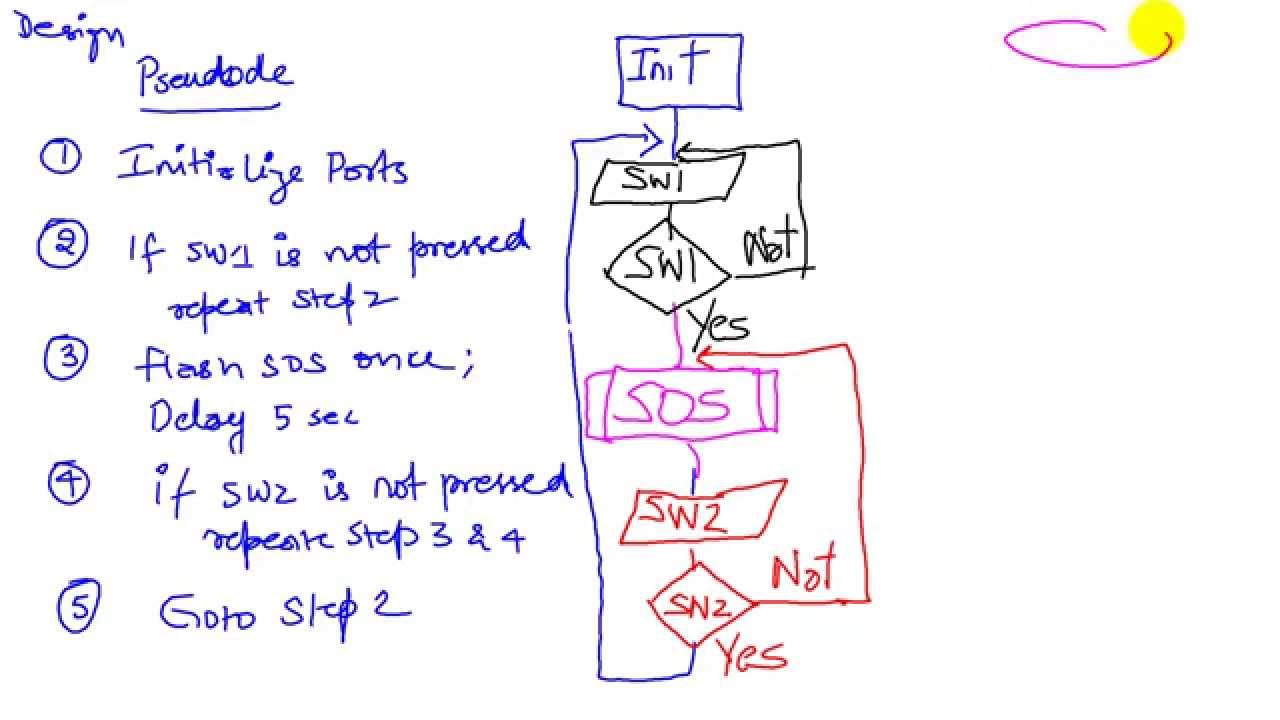 Design
Pseudode
① Initialize Ports
② If SW1 is not pressed
repeat step 2
③ flash SOS once;
Delay 5 sec
④ if SW2 is not pressed
repeate step 3 & 4
⑤ Goto Step 2
Init
SW1
SW1
Not
Yes
SOS
SW2
SW2
Not
Yes